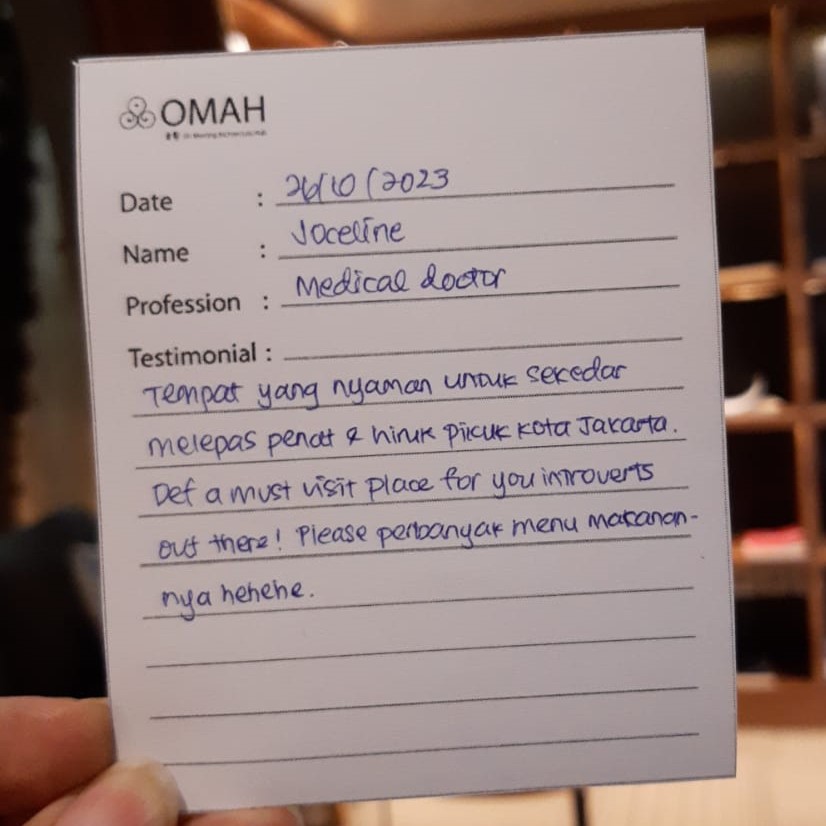 OMAH
Date : 26/10/2023
Name : Joceline
Profession : Medical doctor
Testimonial :
Tempat yang nyaman untuk sekedar
melepas penat & hiruk pikuk kota Jakarta.
Def a must visit place for you introverts
out there! Please perbanyak menu makanan-
nya hehehe.